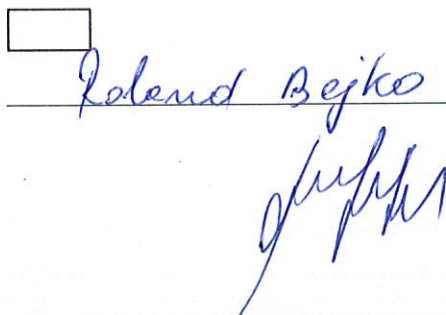 Roland Bejko